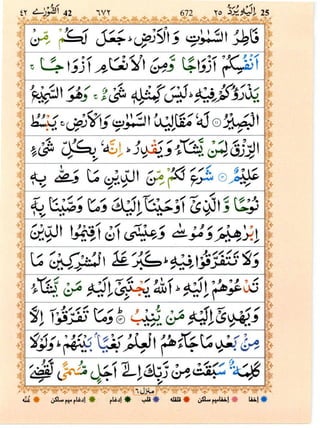 اِلَيْهِ يُرَدُّ 25 ٢٥ 672 ٦٧٢ 42 اَلشُّوْرٰى ٤٢
فَاطِرُ السَّمٰوٰتِ وَالْاَرْضِ ؕ جَعَلَ لَكُمْ مِّنْ
اَنْفُسِكُمْ اَزْوَاجًا وَّمِنَ الْاَنْعَامِ اَزْوَاجًا ۚ
يَذْرَؤُكُمْ فِيْهِ ؕ لَيْسَ كَمِثْلِهٖ شَىْءٌ ۚ وَهُوَ السَّمِيْعُ
الْبَصِيْرُ ۝ لَهٗ مَقَالِيْدُ السَّمٰوٰتِ وَالْاَرْضِ ۚ يَبْسُطُ
الرِّزْقَ لِمَنْ يَّشَآءُ وَيَقْدِرُ ؕ اِنَّهٗ بِكُلِّ شَىْءٍ
عَلِيْمٌ ۝ شَرَعَ لَكُمْ مِّنَ الدِّيْنِ مَا وَصّٰى بِهٖ
نُوْحًا وَّالَّذِىْۤ اَوْحَيْنَاۤ اِلَيْكَ وَمَا وَصَّيْنَا بِهٖۤ
اِبْرٰهِيْمَ وَمُوْسٰى وَعِيْسٰۤى اَنْ اَقِيْمُوا الدِّيْنَ
وَلَا تَتَفَرَّقُوْا فِيْهِ ؕ كَبُرَ عَلَى الْمُشْرِكِيْنَ مَا
تَدْعُوْهُمْ اِلَيْهِ ؕ اَللّٰهُ يَجْتَبِىْۤ اِلَيْهِ مَنْ يَّشَآءُ
وَيَهْدِىْۤ اِلَيْهِ مَنْ يُّنِيْبُ ۝ وَمَا تَفَرَّقُوْۤا اِلَّا
مِنْۢ بَعْدِ مَا جَآءَهُمُ الْعِلْمُ بَغْيًاۢ بَيْنَهُمْ ؕ وَلَوْلَا
كَلِمَةٌ سَبَقَتْ مِنْ رَّبِّكَ اِلٰٓى اَجَلٍ مُّسَمًّى لَّقُضِىَ
منزل ٦
اخفا اخفا میم ساکن قلقلہ قلب ادغام ادغام میم ساکن غنّہ